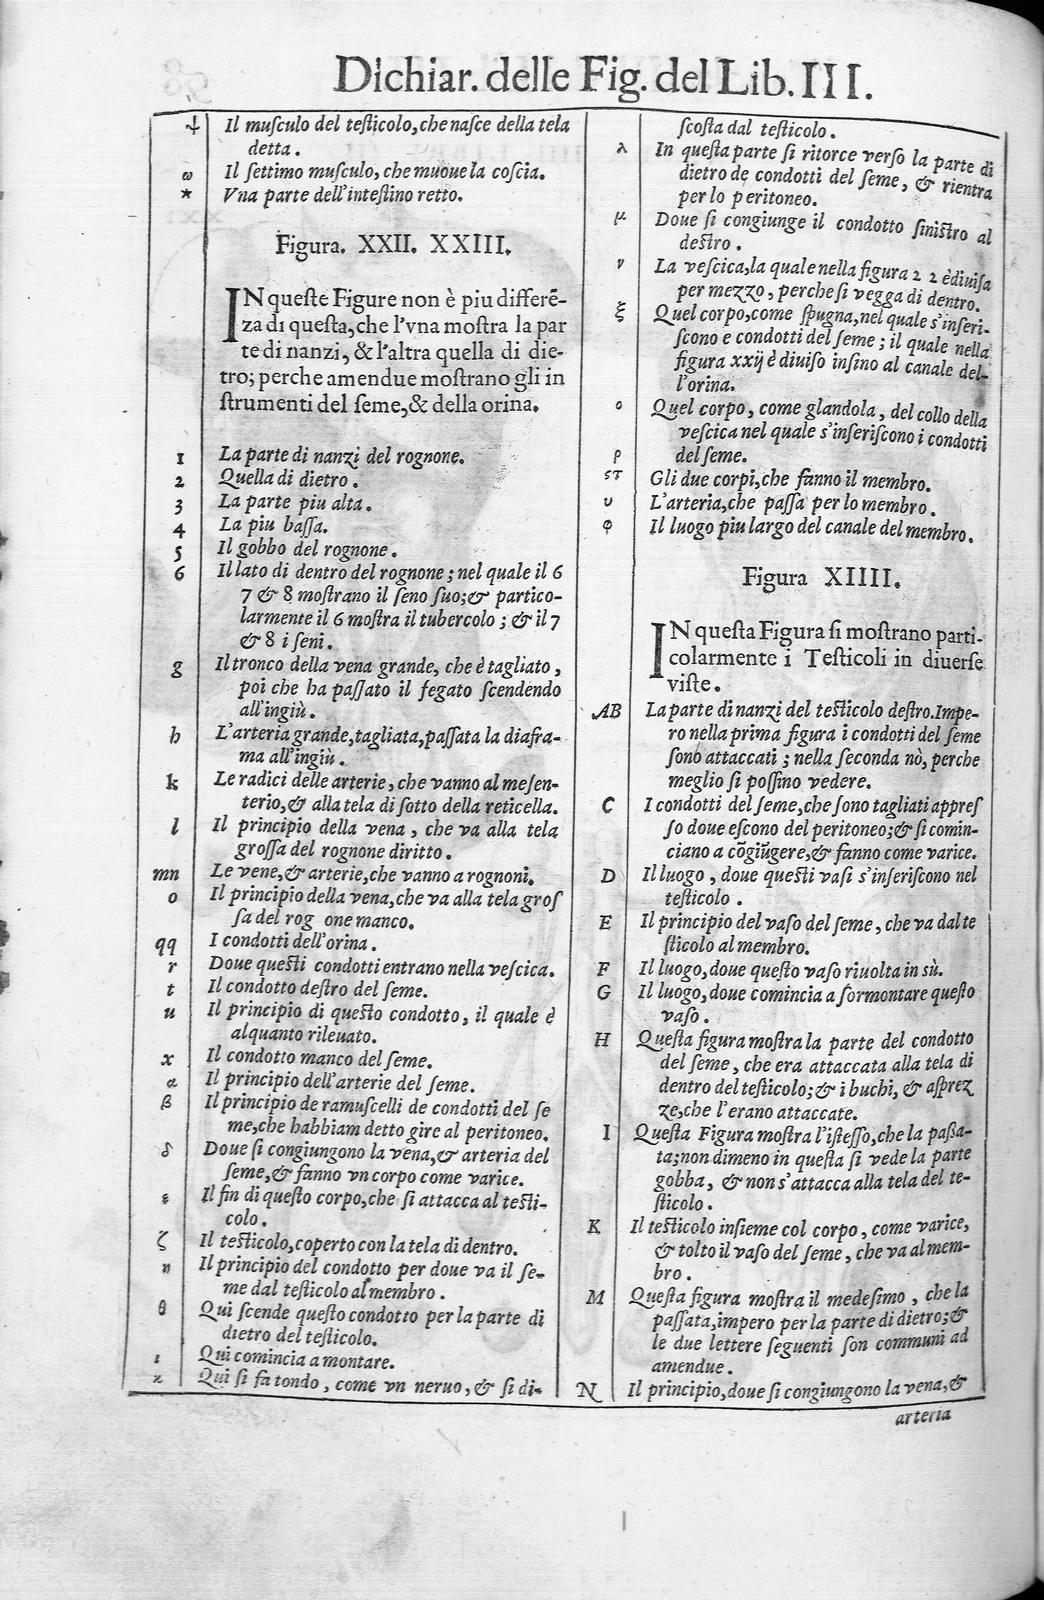 Dichiar. delle Fig. del Lib. III.
ψ Il muſculo del teſticolo, che naſce della tela
detta.
ω Il ſettimo muſculo, che muoue la coſcia.
★ Vna parte dell'inteſtino retto.
Figura. XXII. XXIII.
IN queſte Figure non è piu differē-
za di queſta, che l'vna moſtra la par
te di nanzi, & l'altra quella di die-
tro; perche amendue moſtrano gli in
ſtrumenti del ſeme, & della orina.
1 La parte di nanzi del rognone.
2 Quella di dietro.
3 La parte piu alta.
4 La piu baſſa.
5 Il gobbo del rognone.
6 Il lato di dentro del rognone; nel quale il 6
7 & 8 moſtrano il ſeno ſuo; & partico-
larmente il 6 moſtra il tubercolo; & il 7
& 8 i ſeni.
g Il tronco della vena grande, che è tagliato,
poi che ha paſſato il fegato ſcendendo
all'ingiù.
h L'arteria grande, tagliata, paſſata la diafra-
ma all'ingiù.
k Le radici delle arterie, che vanno al meſen-
terio, & alla tela di ſotto della reticella.
l Il principio della vena, che va alla tela
groſſa del rognone diritto.
mn Le vene, & arterie, che vanno a rognoni.
o Il principio della vena, che va alla tela groſ
ſa del rog one manco.
qq I condotti dell'orina.
r Doue queſti condotti entrano nella veſcica.
t Il condotto deſtro del ſeme.
u Il principio di queſto condotto, il quale è
alquanto rileuato.
x Il condotto manco del ſeme.
α Il principio dell'arterie del ſeme.
β Il principio de ramuſcelli de condotti del ſe
me, che habbiam detto gire al peritoneo.
δ Doue ſi congiungono la vena, & arteria del
ſeme, & fanno vn corpo come varice.
ε Il fin di queſto corpo, che ſi attacca al teſti-
colo.
ζ Il teſticolo, coperto con la tela di dentro.
η Il principio del condotto per doue va il ſe-
me dal teſticolo al membro.
θ Qui ſcende queſto condotto per la parte di
dietro del teſticolo.
ι Qui comincia a montare.
κ Qui ſi fa tondo, come vn neruo, & ſi di-
ſcoſta dal teſticolo.
λ In queſta parte ſi ritorce verſo la parte di
dietro de condotti del ſeme, & rientra
per lo peritoneo.
μ Doue ſi congiunge il condotto ſiniſtro al
deſtro.
ν La veſcica, la quale nella figura 22 è diuiſa
per mezzo, perche ſi vegga di dentro.
ξ Quel corpo, come ſpugna, nel quale s'inſeri-
ſcono e condotti del ſeme; il quale nella
figura xxij è diuiſo inſino al canale del-
l'orina.
ο Quel corpo, come glandola, del collo della
veſcica nel quale s'inſeriſcono i condotti
ρ del ſeme.
ϛτ Gli due corpi, che fanno il membro.
υ L'arteria, che paſſa per lo membro.
φ Il luogo piu largo del canale del membro.
Figura XIIII.
IN queſta Figura ſi moſtrano parti-
colarmente i Teſticoli in diuerſe
viſte.
AB La parte di nanzi del teſticolo deſtro. Impe-
ro nella prima figura i condotti del ſeme
ſono attaccati; nella ſeconda nò, perche
meglio ſi poſſino vedere.
C I condotti del ſeme, che ſono tagliati appreſ
ſo doue eſcono del peritoneo; & ſi comin-
ciano a cōgiūgere, & fanno come varice.
D Il luogo, doue queſti vaſi s'inſeriſcono nel
teſticolo.
E Il principio del vaſo del ſeme, che va dal te
ſticolo al membro.
F Il luogo, doue queſto vaſo riuolta in sù.
G Il luogo, doue comincia a ſormontare queſto
vaſo.
H Queſta figura moſtra la parte del condotto
del ſeme, che era attaccata alla tela di
dentro del teſticolo; & i buchi, & aſprez
ze, che l'erano attaccate.
I Queſta Figura moſtra l'iſteſſo, che la paßa-
ta; non dimeno in queſta ſi vede la parte
gobba, & non s'attacca alla tela del te-
ſticolo.
K Il teſticolo inſieme col corpo, come varice,
& tolto il vaſo del ſeme, che va al mem-
bro.
M Queſta figura moſtra il medeſimo, che la
paſſata, impero per la parte di dietro; &
le due lettere ſeguenti ſon communi ad
amendue.
N Il principio, doue ſi congiungono la vena, &
arteria